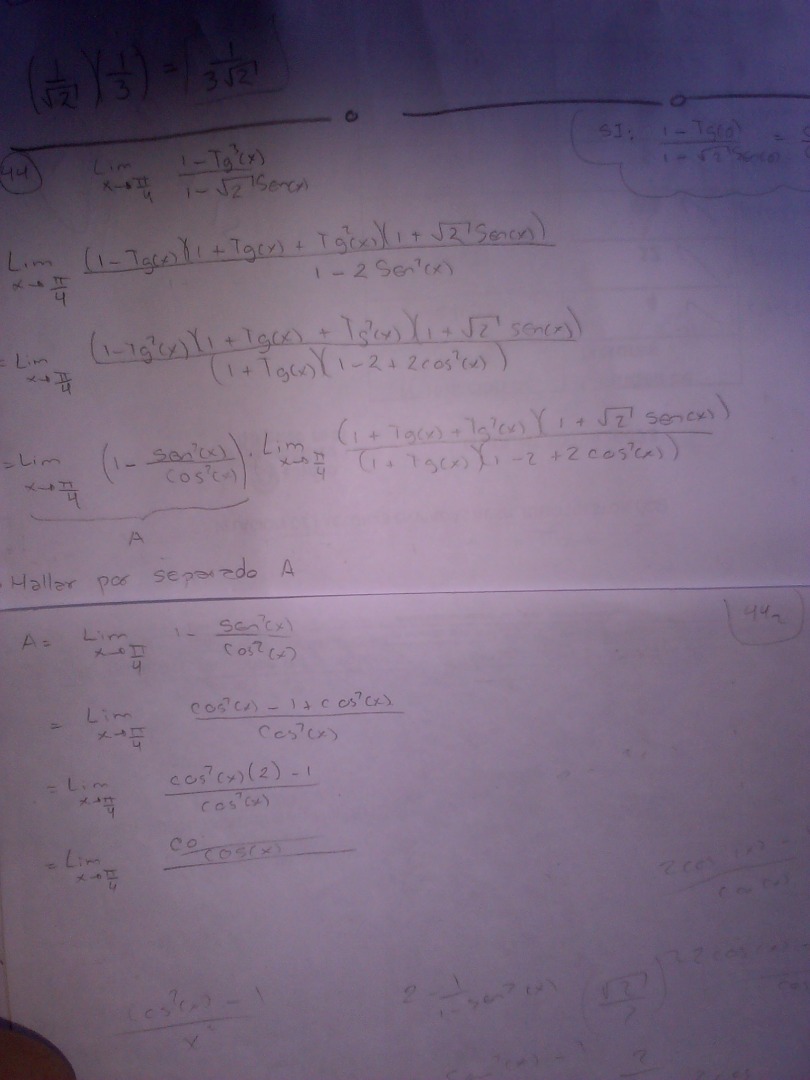 (1/√2)(1/3) = 1/(3√2)
SI: (1 - Tg(0))/(1 - √2 Sen(0)) =
44 Lim x→π/4 (1 - Tg³(x))/(1 - √2 Sen(x))
Lim x→π/4 ((1 - Tg(x))(1 + Tg(x) + Tg²(x))(1 + √2 Sen(x)))/(1 - 2 Sen²(x))
= Lim x→π/4 ((1 - Tg²(x))(1 + Tg(x) + Tg²(x))(1 + √2 sen(x)))/((1 + Tg(x))(1 - 2 + 2cos²(x)))
= Lim x→π/4 (1 - sen²(x)/cos²(x)) . Lim x→π/4 ((1 + Tg(x) + Tg²(x))(1 + √2 sen(x)))/((1 + Tg(x))(1 - 2 + 2cos²(x)))
A
Hallar por separado A
44₂
A = Lim x→π/4 1 - sen²(x)/cos²(x)
= Lim x→π/4 (cos²(x) - 1 + cos²(x))/cos²(x)
= Lim x→π/4 (cos²(x)(2) - 1)/cos²(x)
= Lim x→π/4 co cos(x)